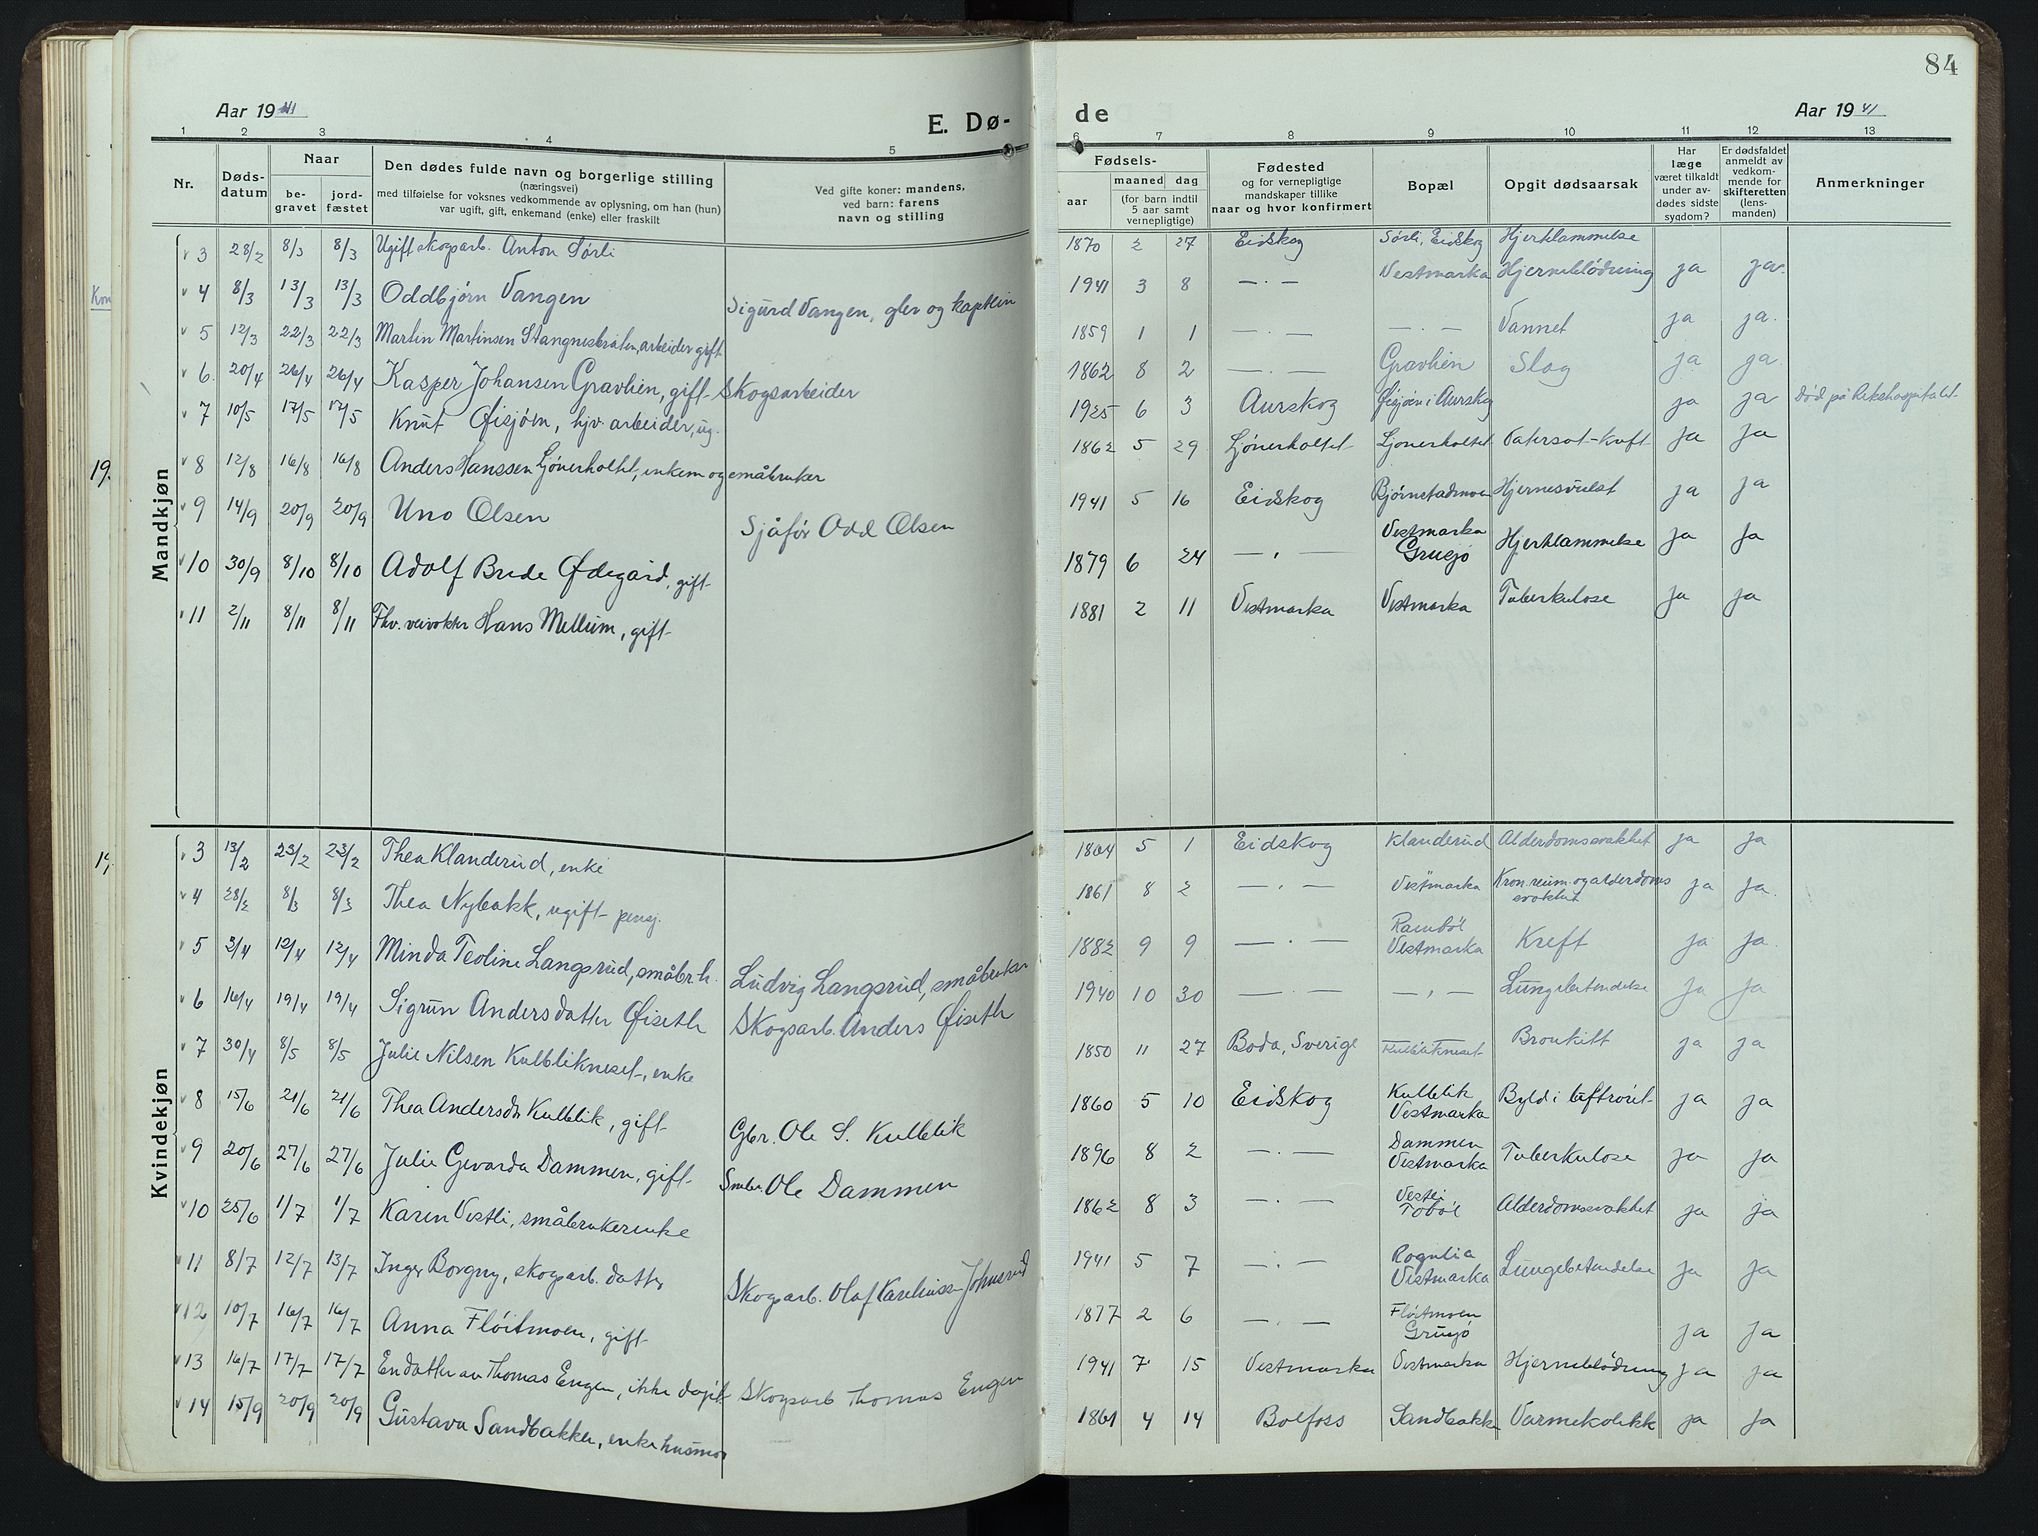 84
Aar 1941
E. Dø-
de
Aar 1941
1 2 3 4 5 6 7 8 9 10 11 12 13
Nr.
Døds-
datum
Naar
be-
gravet
jord-
fæstet
Den dødes fulde navn og borgerlige stilling
(næringsvei)
med tilføielse for voksnes vedkommende av oplysning, om han (hun)
var ugift, gift, enkemand (enke) eller fraskilt
Ved gifte koner: mandens,
ved barn: farens
navn og stilling
Fødsels-
aar
maaned dag
(for barn indtil
5 aar samt
vernepligtige)
Fødested
og for vernepligtige
mandskaper tillike
naar og hvor konfirmert
Bopæl
Opgit dødsaarsak
Har
læge
været tilkaldt
under av-
dødes sidste
sygdom?
Er dødsfaldet
anmeldt av
vedkom-
mende for
skifteretten
(lens-
manden)
Anmerkninger
Mandkjøn
3 28/2 8/3 8/3 Ugift skogsarb. Anton Sørli 1870 2 27 Eidskog Sørli, Eidskog Hjertelammelse
4 8/3 13/3 13/3 Oddbjørn Vangen Sigurd Vangen, glev og kaptein 1941 3 8 — . — Vestmarka Hjerneblödning ja ja.
5 12/3 22/3 22/3 Martin Martinsen Stangnesbraten, arbeider gift 1859 1 1 — . — — . — Vannet ja ja.
6 20/4 26/4 26/4 Kasper Johansen Gravlien, gift Skogsarbeider 1862 8 2 — . — Gravlien Slag ja ja
7 10/5 17/5 17/5 Knut Øisjøen, hjv. arbeider, ug. 1925 6 3 Aurskog Øisjøen i Aurskog ja ja Död på Rikshospitalet
8 12/8 16/8 16/8 Anders Hanssen Ljönerholtet, enkem og småbruker 1862 5 29 Ljönerholtet Ljönerholtet ja ja
9 14/9 20/9 20/9 Uno Olsen Sjåfør Odd Olsen 1941 5 16 Eidskog Bjørnstadmoen Hjernesvulst ja ja
10 30/9 8/10 8/10 Adolf Brede Ødegård, gift 1879 6 24 — . — Vestmarka Grusjø Hjertelammelse ja ja
11 2/11 8/11 8/11 Fhv. veivokter Hans Mellum, gift 1881 2 11 Vestmarka Vestmarka Tuberkulose ja ja
Kvindekjøn
3 13/2 23/2 23/2 Thea Klanderud, enke 1864 5 1 Eidskog Klanderud Alderdomssvakhet ja ja
4 28/2 8/3 8/3 Thea Nybakk, ugift pensj. 1861 8 2 — . — Vestmarka Kron. reum. og alderdoms svakhet ja ja.
5 3/4 12/4 12/4 Minda Teoline Langsrud, småbr.h. Ludvig Langsrud, småbruker 1882 9 9 — . — Rambøl Vestmarka Kreft ja ja.
6 16/4 19/4 19/4 Sigrun Andersdatter Øiseth Skogsarb. Anders Øiseth 1940 10 30 — . — — . — Lungebetendelse ja ja
7 30/4 8/5 8/5 Julie Nilsen Kulblikneset, enke 1850 11 27 Boda, Sverige Kulblikneset Bronkitt ja ja
8 15/6 21/6 21/6 Thea Andersdr Kulblik, gift Gbr. Ole S. Kulblik 1860 5 10 Eidskog Kulblik Vestmarka Byld i luftröret ja ja
9 20/6 27/6 27/6 Julie Gevarda Dammen, gift Smbr. Ole Dammen 1896 8 2 — . — Dammen Vestmarka Tuberkulose ja ja
10 25/6 1/7 1/7 Karen Vestli, småbrukerenke 1862 8 3 — . — Vestli Tobøl Alderdomssvakhet ja ja
11 8/7 12/7 13/7 Inger Borgny, skogsarb. datter Skogsarb. Olaf Johnsrud 1941 5 7 — . — Rognlia Vestmarka Lungebetendelse ja ja
12 10/7 16/7 16/7 Anna Flöitmoen, gift 1877 2 6 — . — Flöitmoen Grusjö ja ja
13 16/7 17/7 17/7 En datter av Thomas Engen, ikke døpt Skogsarb Thomas Engen 1941 7 15 Vestmarka Vestmarka Hjerneblödning ja ja
14 15/9 20/9 20/9 Gustava Sandbakken, enke husmor 1861 4 14 Bolfoss Sandbakken Varmekolikk ja ja